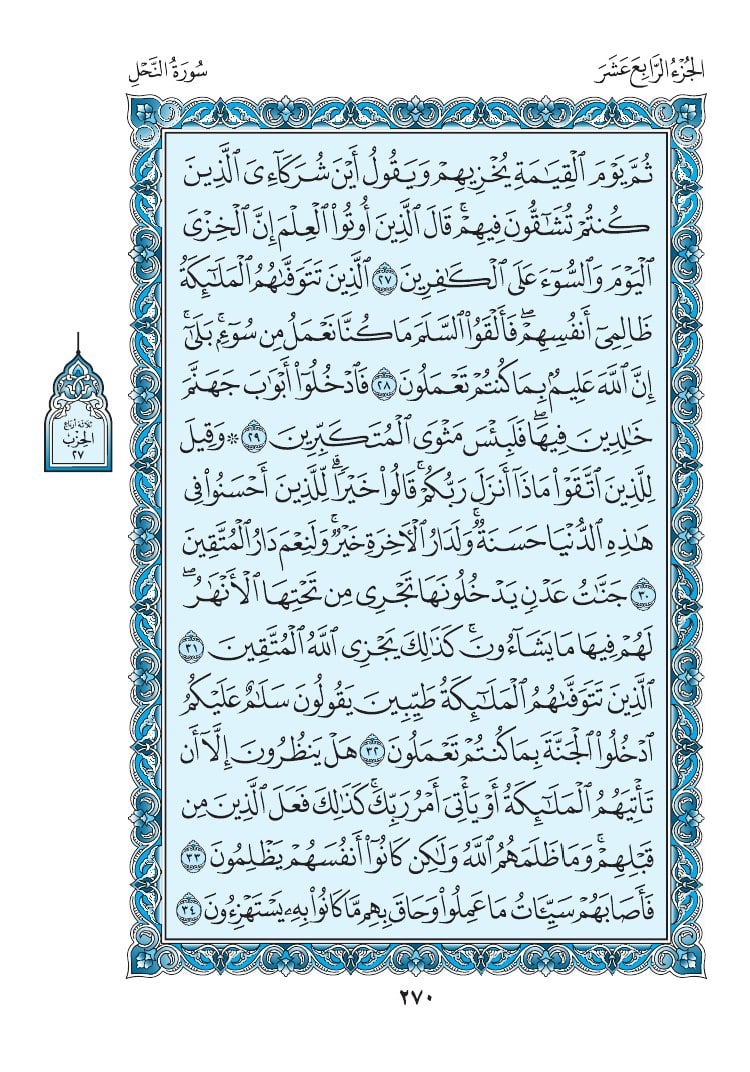 الجُزْءُ الرَّابِعَ عَشَرَ
سُورَةُ النَّحْلِ
ثُمَّ يَوْمَ ٱلْقِيَٰمَةِ يُخْزِيهِمْ وَيَقُولُ أَيْنَ شُرَكَآءِىَ ٱلَّذِينَ
كُنتُمْ تُشَٰٓقُّونَ فِيهِمْ ۚ قَالَ ٱلَّذِينَ أُوتُوا۟ ٱلْعِلْمَ إِنَّ ٱلْخِزْىَ
ٱلْيَوْمَ وَٱلسُّوٓءَ عَلَى ٱلْكَٰفِرِينَ ٢٧ ٱلَّذِينَ تَتَوَفَّىٰهُمُ ٱلْمَلَٰٓئِكَةُ
ظَالِمِىٓ أَنفُسِهِمْ ۖ فَأَلْقَوُا۟ ٱلسَّلَمَ مَا كُنَّا نَعْمَلُ مِن سُوٓءٍۭ ۚ بَلَىٰٓ ۚ
إِنَّ ٱللَّهَ عَلِيمٌۢ بِمَا كُنتُمْ تَعْمَلُونَ ٢٨ فَٱدْخُلُوٓا۟ أَبْوَٰبَ جَهَنَّمَ
خَٰلِدِينَ فِيهَا ۖ فَلَبِئْسَ مَثْوَى ٱلْمُتَكَبِّرِينَ ٢٩ ۞ وَقِيلَ
لِلَّذِينَ ٱتَّقَوْا۟ مَاذَآ أَنزَلَ رَبُّكُمْ ۚ قَالُوا۟ خَيْرًا ۗ لِّلَّذِينَ أَحْسَنُوا۟ فِى
هَٰذِهِ ٱلدُّنْيَا حَسَنَةٌ ۚ وَلَدَارُ ٱلْءَاخِرَةِ خَيْرٌ ۚ وَلَنِعْمَ دَارُ ٱلْمُتَّقِينَ
٣٠ جَنَّٰتُ عَدْنٍ يَدْخُلُونَهَا تَجْرِى مِن تَحْتِهَا ٱلْأَنْهَٰرُ ۖ
لَهُمْ فِيهَا مَا يَشَآءُونَ ۚ كَذَٰلِكَ يَجْزِى ٱللَّهُ ٱلْمُتَّقِينَ ٣١
ٱلَّذِينَ تَتَوَفَّىٰهُمُ ٱلْمَلَٰٓئِكَةُ طَيِّبِينَ ۙ يَقُولُونَ سَلَٰمٌ عَلَيْكُمُ
ٱدْخُلُوا۟ ٱلْجَنَّةَ بِمَا كُنتُمْ تَعْمَلُونَ ٣٢ هَلْ يَنظُرُونَ إِلَّآ أَن
تَأْتِيَهُمُ ٱلْمَلَٰٓئِكَةُ أَوْ يَأْتِىَ أَمْرُ رَبِّكَ ۚ كَذَٰلِكَ فَعَلَ ٱلَّذِينَ مِن
قَبْلِهِمْ ۚ وَمَا ظَلَمَهُمُ ٱللَّهُ وَلَٰكِن كَانُوٓا۟ أَنفُسَهُمْ يَظْلِمُونَ ٣٣
فَأَصَابَهُمْ سَيِّـَٔاتُ مَا عَمِلُوا۟ وَحَاقَ بِهِم مَّا كَانُوا۟ بِهِۦ يَسْتَهْزِءُونَ ٣٤
ثلاثة أرباع
الحزب
٢٧
٢٧٠